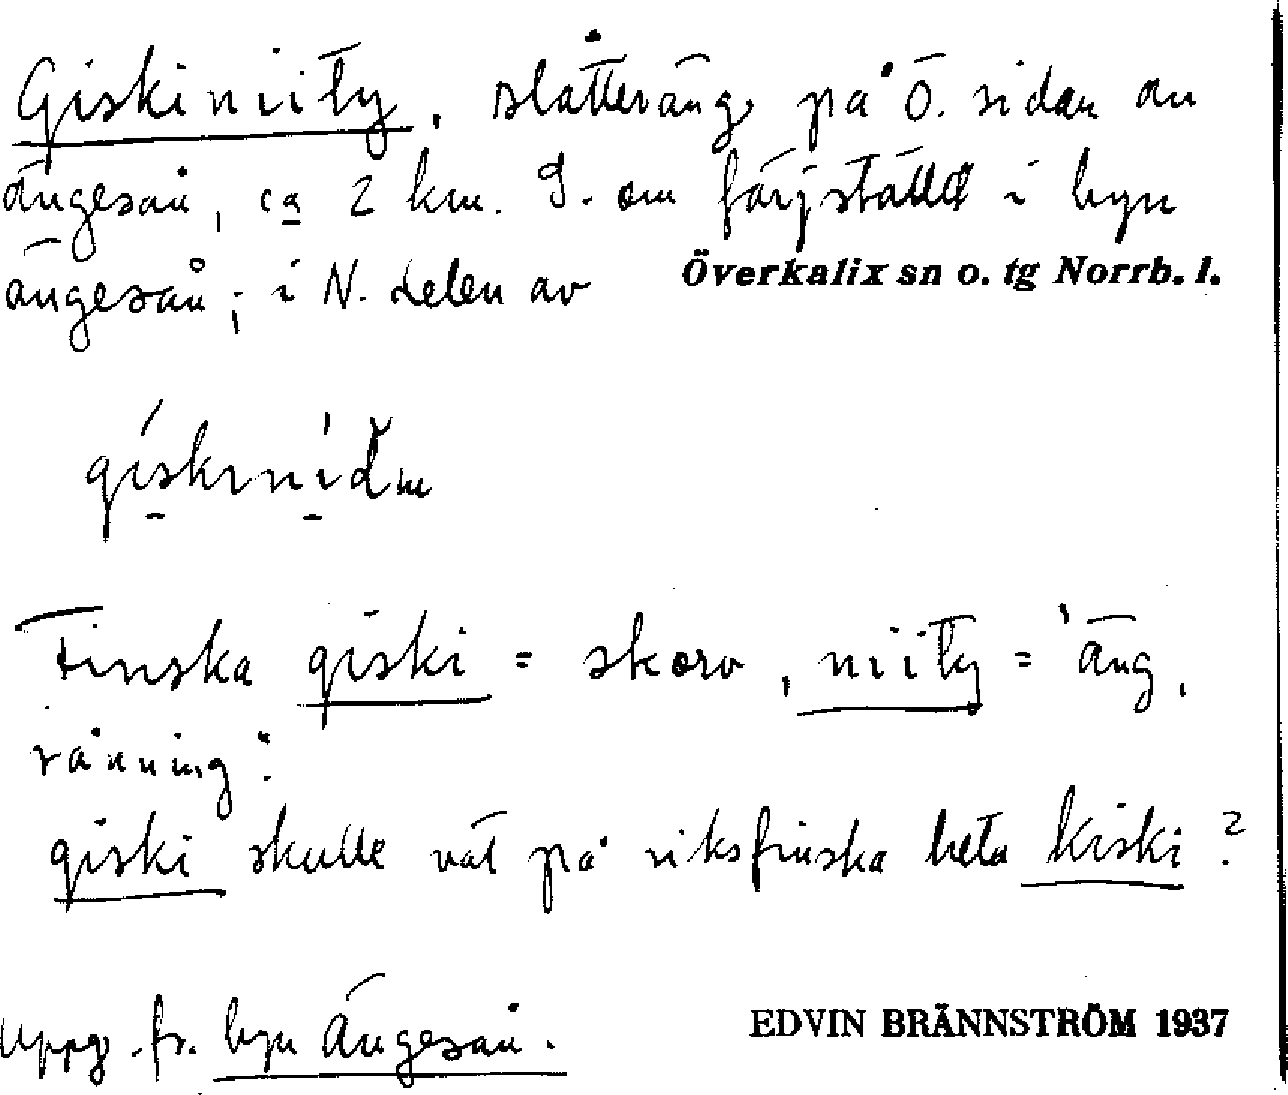 Giskiniity, slåtteräng på Ö. sidan au
ängesån, ca 2 km. S. om färjställd i byn
ängesån; i N. delen av Överkalix sn o. tg Norrb. l.
Finska giski = skorv, niity = 'äng,
ränning'.
giski skulle väl på riksfinska heta kiski?
Uppg. fr. byn Ängesån.
EDVIN BRÄNNSTRÖM 1937